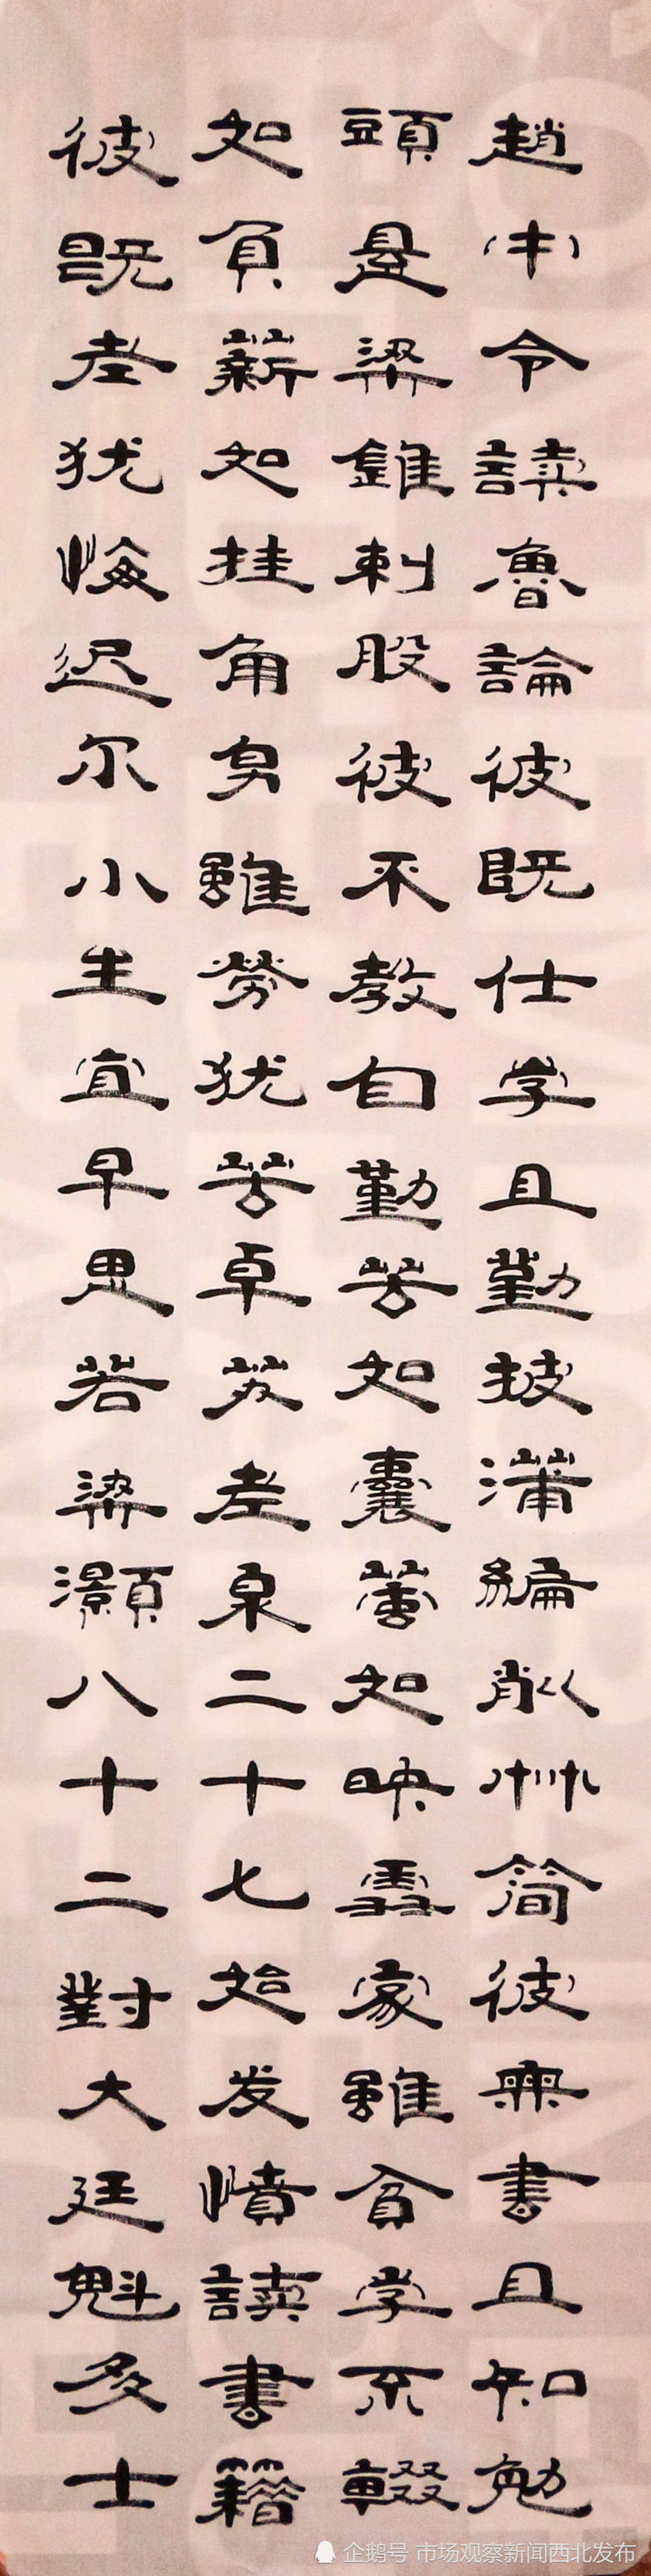 趙中令讀魯論彼既仕学且勤披蒲編削竹简彼無書且知勉
頭悬梁錐刺股彼不教自勤苦如囊萤如映雪家雖貧学不輟
如負薪如挂角身雖勞犹苦卓苏老泉二十七始发憤讀書籍
彼既老犹悔迟尔小生宜早思若梁灝八十二對大廷魁多士
企鹅号 市场观察新闻西北发布